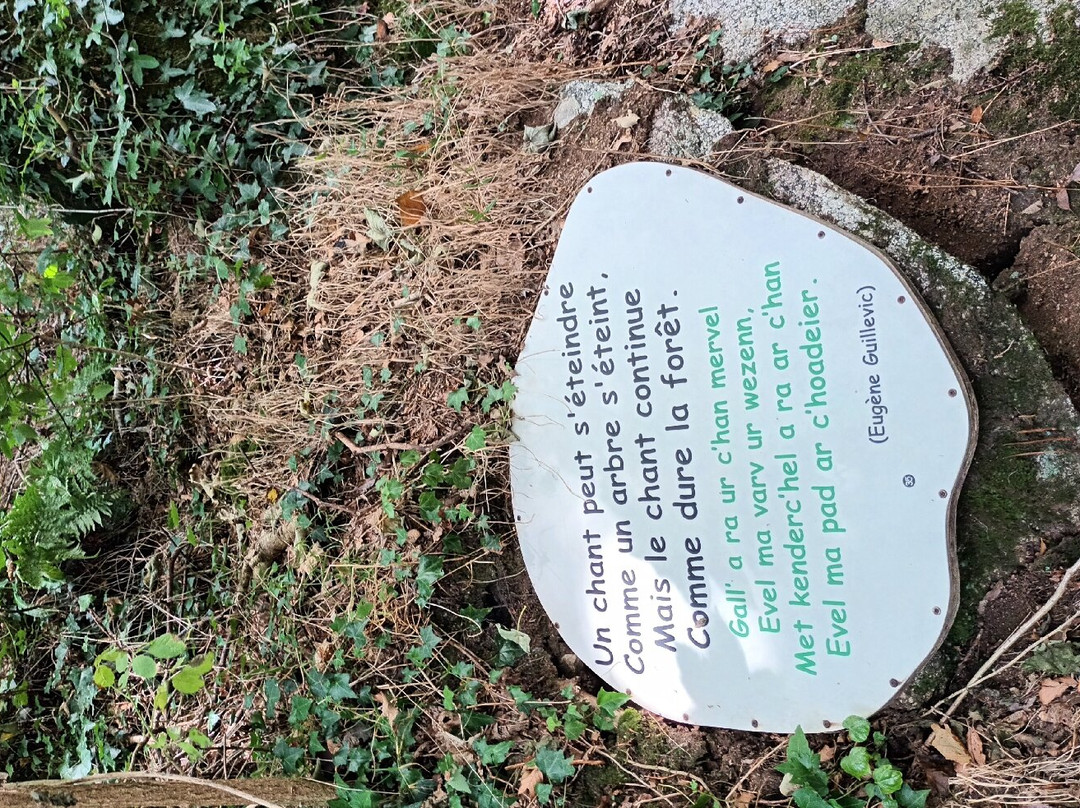 Un chant peut s'éteindre
Comme un arbre s'éteint,
Mais le chant continue
Comme dure la forêt.
Gall' a ra ur c'han mervel
Evel ma varv ur wezenn,
Met kenderc'hel a ra ar c'han
Evel ma pad ar c'hoadeier.
(Eugène Guillevic)